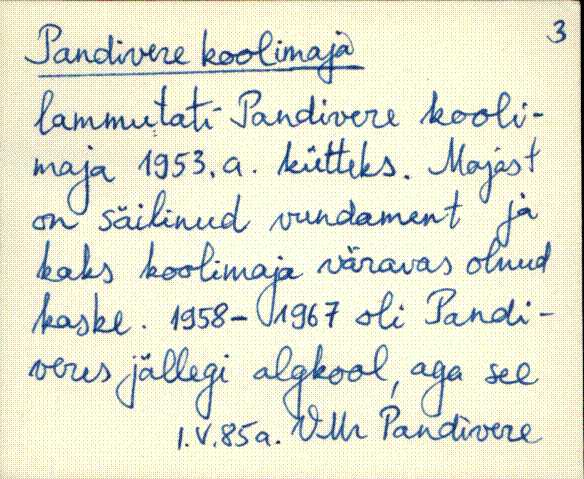 3
Pandivere koolimaja
lammutati Pandivere kooli-
maja 1953. a. kütteks. Majast
on säilinud vundament ja
kaks koolimaja väravas olnud
kaske. 1958- 1967 oli Pandi-
veres jällegi algkool, aga see
1.V.85a. VMr Pandivere